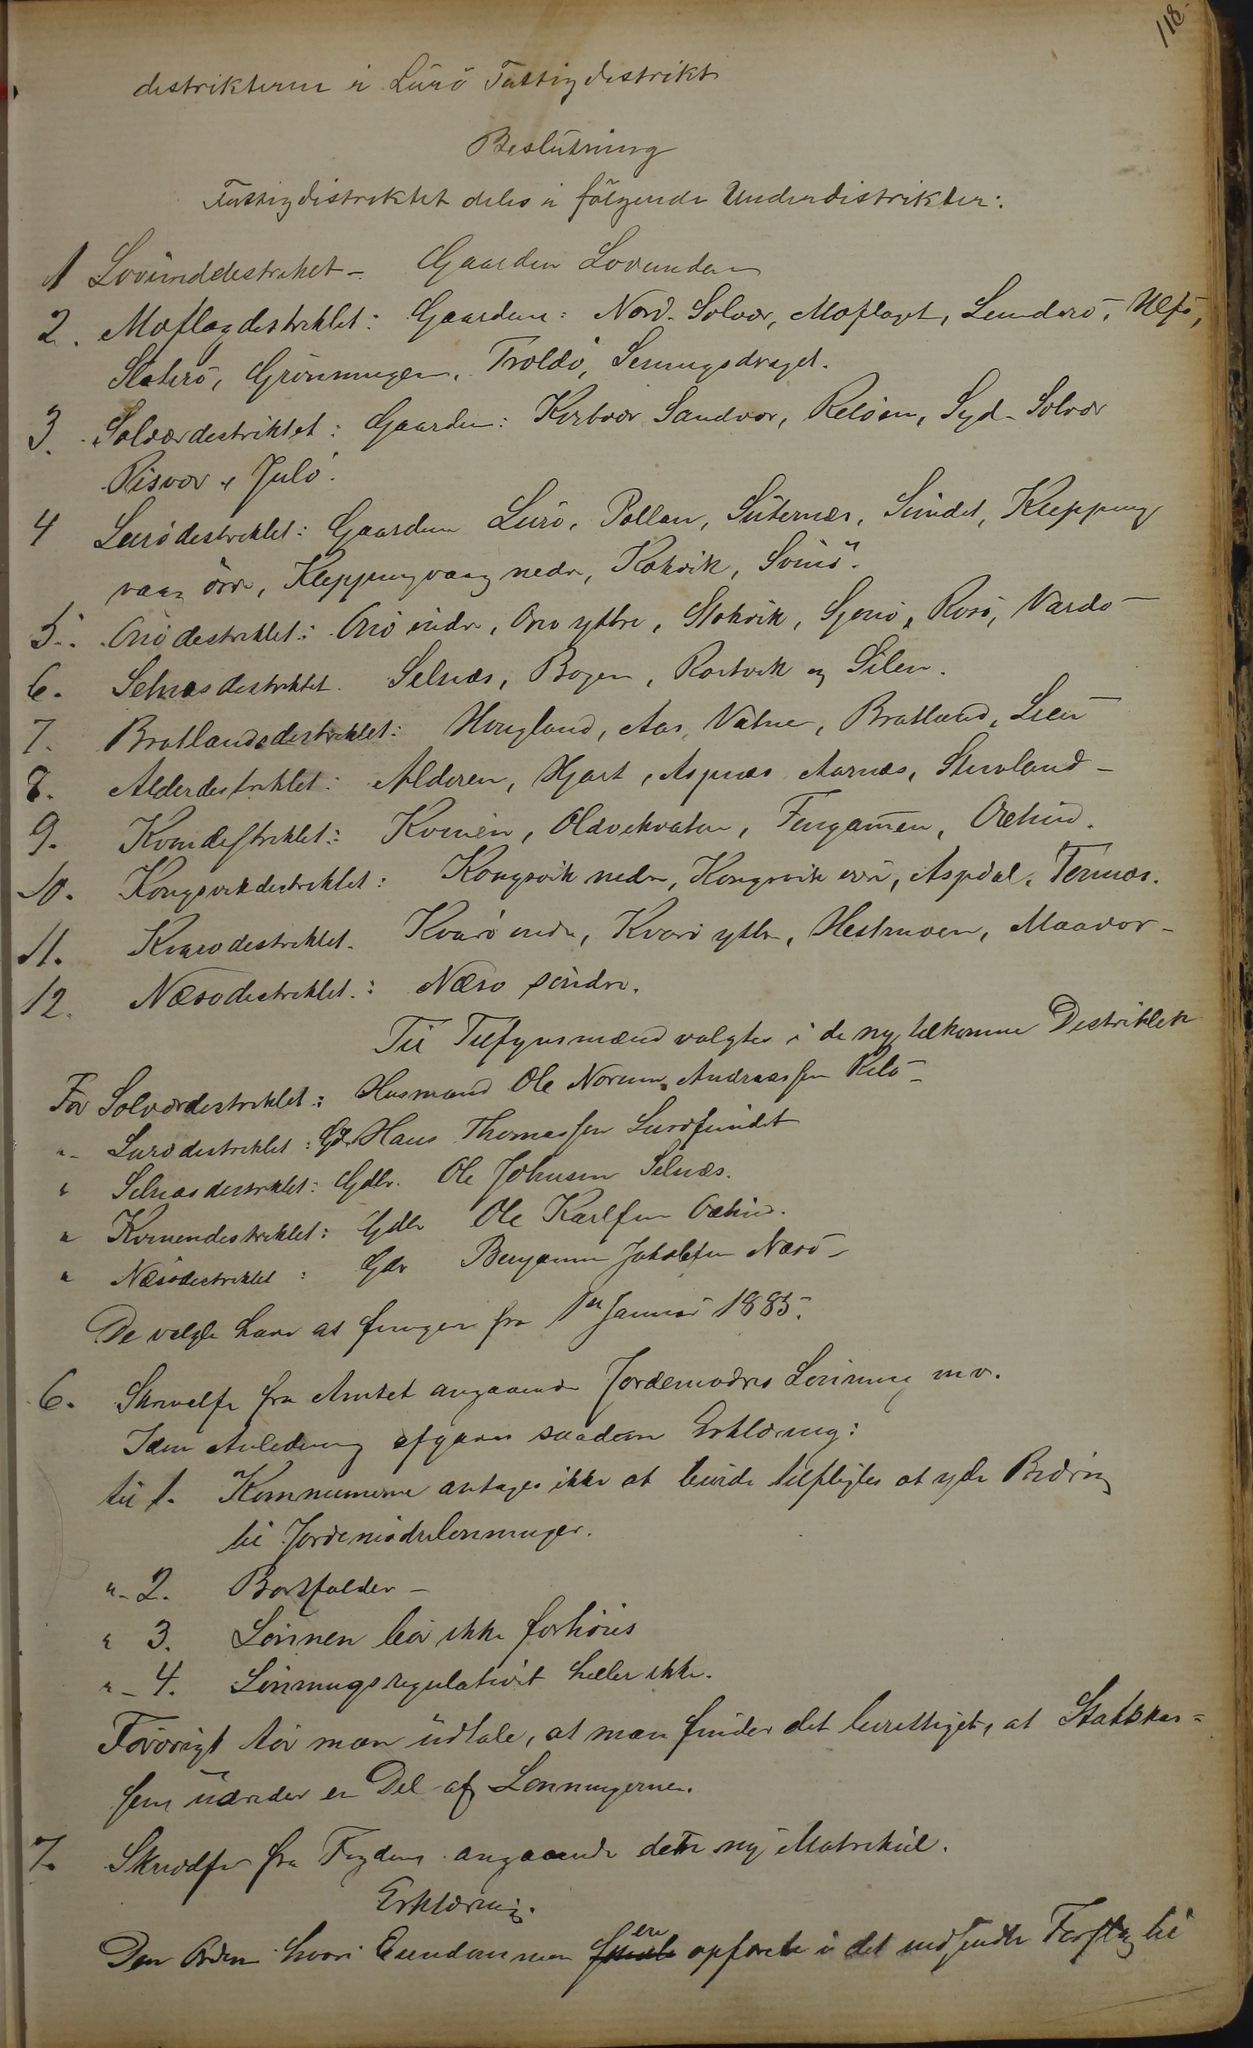 118.
distrikterne i Lurö Fattigdistrikt
Beslutning
Fattigdistriktet deles i følgende Underdistrikter:
1 Lovunddistriktet - Gaarden Lovunden
2. Moflagdistriktet: Gaardene: Nord-Solvær, Moflaget, Lunderö, Ulfö,
Slaterö, Grönningen, Troldö, Senningsdraget.
3. Solværdistriktet: Gaarden: Kirkvær Sandvær, Relöen, Syd-Solvær
Risvær & Julö.
4 Lurödistriktet: Gaardene Lurö, Pollen, Suternes, Sundet, Klepping
vaag övre, Kleppingvaag nedre, Kokvik, Svinö.
5. Onödistriktet: Onö indre, Onö yttre, Stokvik, Sjonö, Rosö, Vardö -
6. Selnæsdistriktet. Selnæs, Bogen, Rortvik og Silen.
7. Bratlandsdistriktet: Haugland, Aas, Vatne, Bratland, Lien
8. Alderdistriktet: Alderen, Hjart, Aspnæs Aarnæs, Stuvland -
9. Kvindistriktet: Kvinen, Oldvikvatn, Fingamen, Oehind.
10. Kongsvikdistriktet: Kongsvik nedre, Kongsvik övre, Aspdal, Tennæs.
11. Kvarödistriktet. Kvarö indre, Kvarö yttre, Hestmoen, Maavær -
12. Næsödistriktet.: Næsö söndre.
Til Tilsynsmænd valgtes i de nytilkomne Distrikter
For Solværdistriktet: Husmand Ole Norum Andreassen Relö -
"- Lurödistriktet: Gdr Hans Thomassen Lurösundet
" Selnæsdistriktet: Gdbr. Ole Johnsen Selnæs.
" Kvinendistriktet: Gdbr Ole Karlsen Oehind.
" Næsödistriktet: Gdr Benjamin Jakobsen Næsö -
De valgte have at fungere fra 1ste Januar 1885.
6. Skrivelse fra Amtet angaaende Jordemødres Lønning m.v.
I den Anledning afgaves saadan Erklæring:
til 1. Kommunerne antages ikke at burde tilpligtes at yde Bidrag
til Jordemødrelønninger.
"- 2. Bortfalder -
" 3. Lønnen bør ikke forhøies
"- 4. Lønningsregulativet heller ikke.
Forøvrigt tør man udtale, at man finder det berettiget, at Statskas=
sen udreder en Del af Lønningerne.
7. Skrivelse fra Fogden angaaende det ny Matrikul.
Erklæring.
Den Orden hvori Eiendommen ere opførte i det indsendte Forslag til